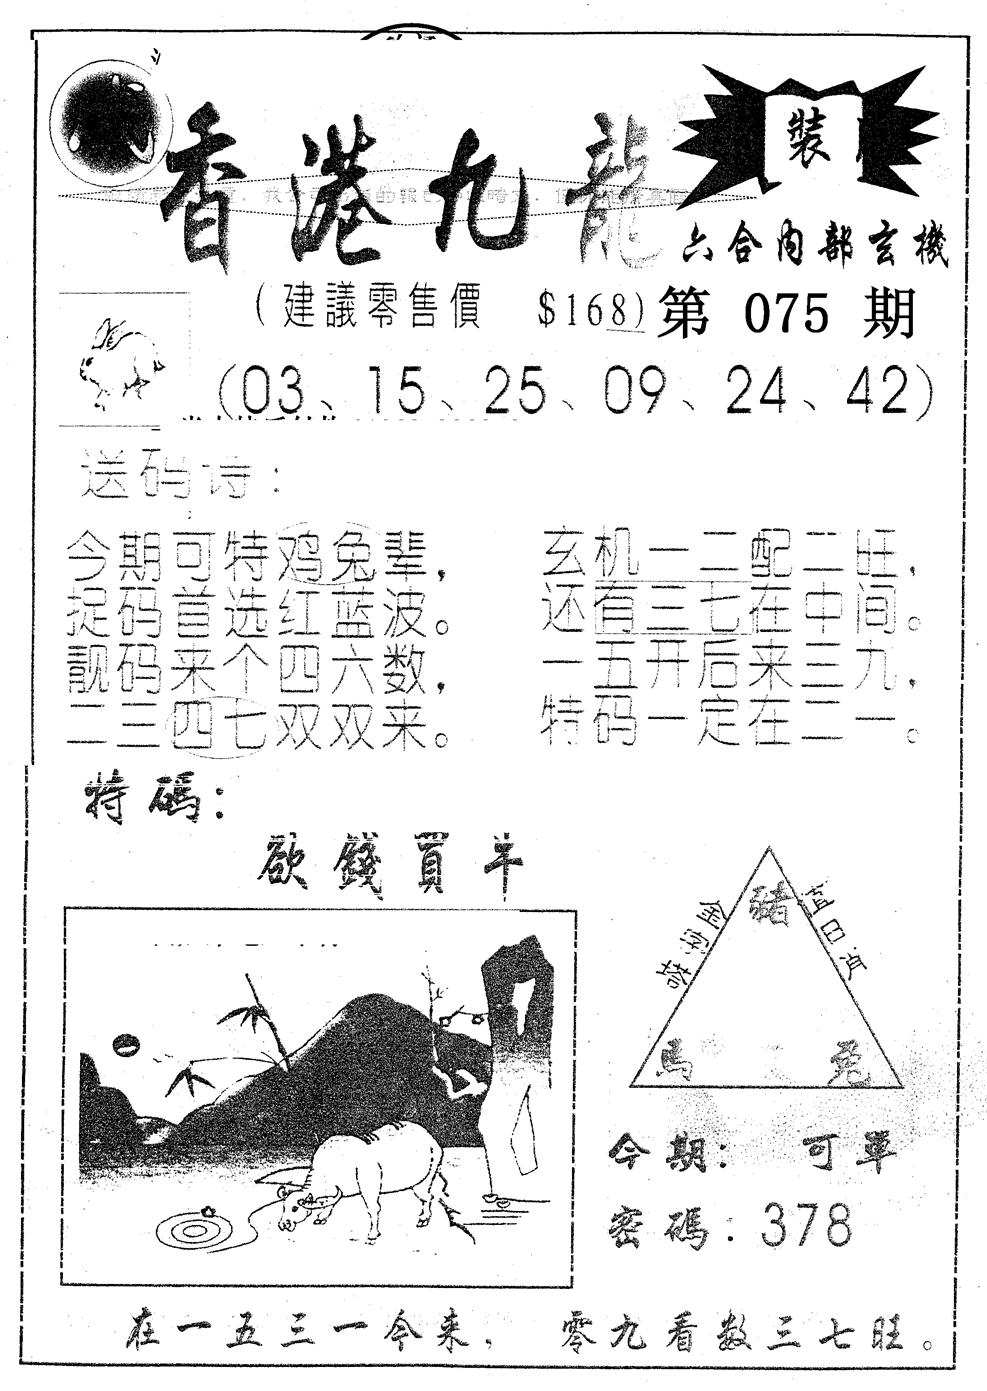 香港九龍
裝
六合内部玄機
(建議零售價 $168) 第 075 期
(03、15、25、09、24、42)
送码诗:
今期可特鸡兔辈, 玄机一二配二旺,
捉码首选红蓝波。 还有三七在中间。
靓码来个四六数, 一五开后来三九,
二三四七双双来。 特码一定在二一。
特碼:
欲錢買牛
豬
金字塔
直日肖
馬 兔
今期: 可單
密碼: 378
在一五三一今来, 零九看数三七旺。